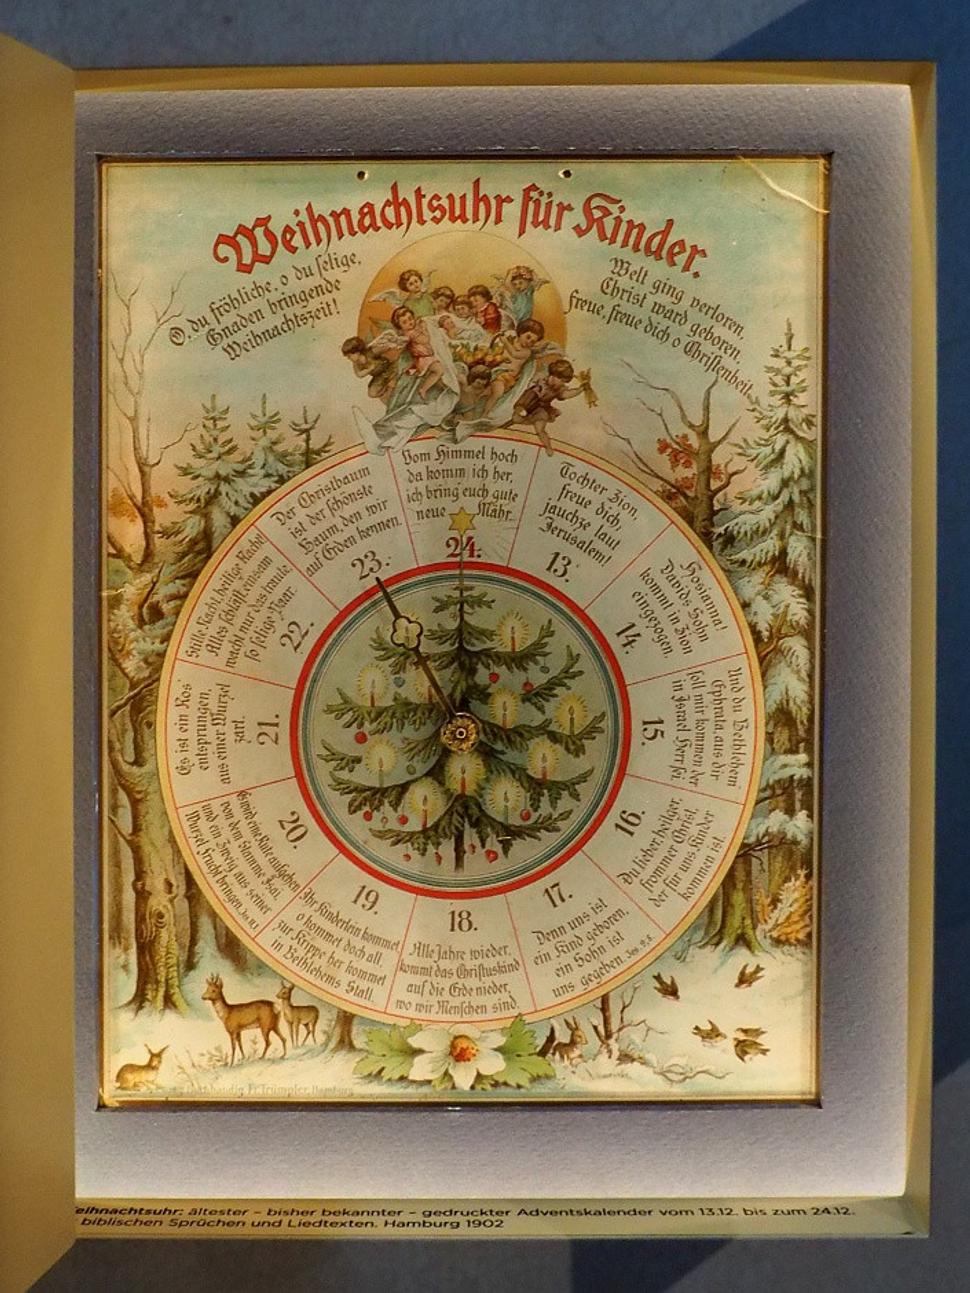 Weihnachtsuhr für Kinder.
O, du fröhliche, o du selige,
Gnaden bringende
Weihnachtszeit!
Welt ging verloren,
Christ ward geboren,
Freue, freue dich o Christenheit.
Vom Himmel hoch
da komm ich her,
ich bring' euch gute
neue Mähr.
24.
Tochter Zion,
freue dich,
jauchze laut
Jerusalem!
13.
Hosianna!
Davids Sohn
kommt in Zion
eingezogen.
14.
Und du Bethlehem
Ephrata, aus dir
soll mir kommen der
in Israel Herr sei.
15.
Du lieber, heil'ger,
frommer Christ,
der für uns Kinder
kommen ist.
16.
Denn uns ist
ein Kind geboren,
ein Sohn ist
uns gegeben. Jes. 9,6.
17.
Alle Jahre wieder,
kommt das Christuskind
auf die Erde nieder,
wo wir Menschen sind.
18.
Ihr Kinderlein kommet
o kommet doch all,
zur Krippe her kommet
in Bethlehems Stall.
19.
Es wird eine Rute aufgehen
von dem Stamme Isai,
und ein Zweig aus seiner
Wurzel Frucht bringen. Jes. 11,1
20.
Es ist ein Ros
entsprungen,
aus einer Wurzel
zart.
21.
Stille Nacht, heilige Nacht!
Alles schläft, einsam
wacht nur das traute,
so selige Paar.
22.
Der Christbaum
ist der schönste
Baum, den wir
auf Erden kennen.
23.
Fr. Trümpler, Hamburg
eihnachtsuhr: ältester – bisher bekannter – gedruckter Adventskalender vom 13.12. bis zum 24.12.
biblischen Sprüchen und Liedtexten. Hamburg 1902